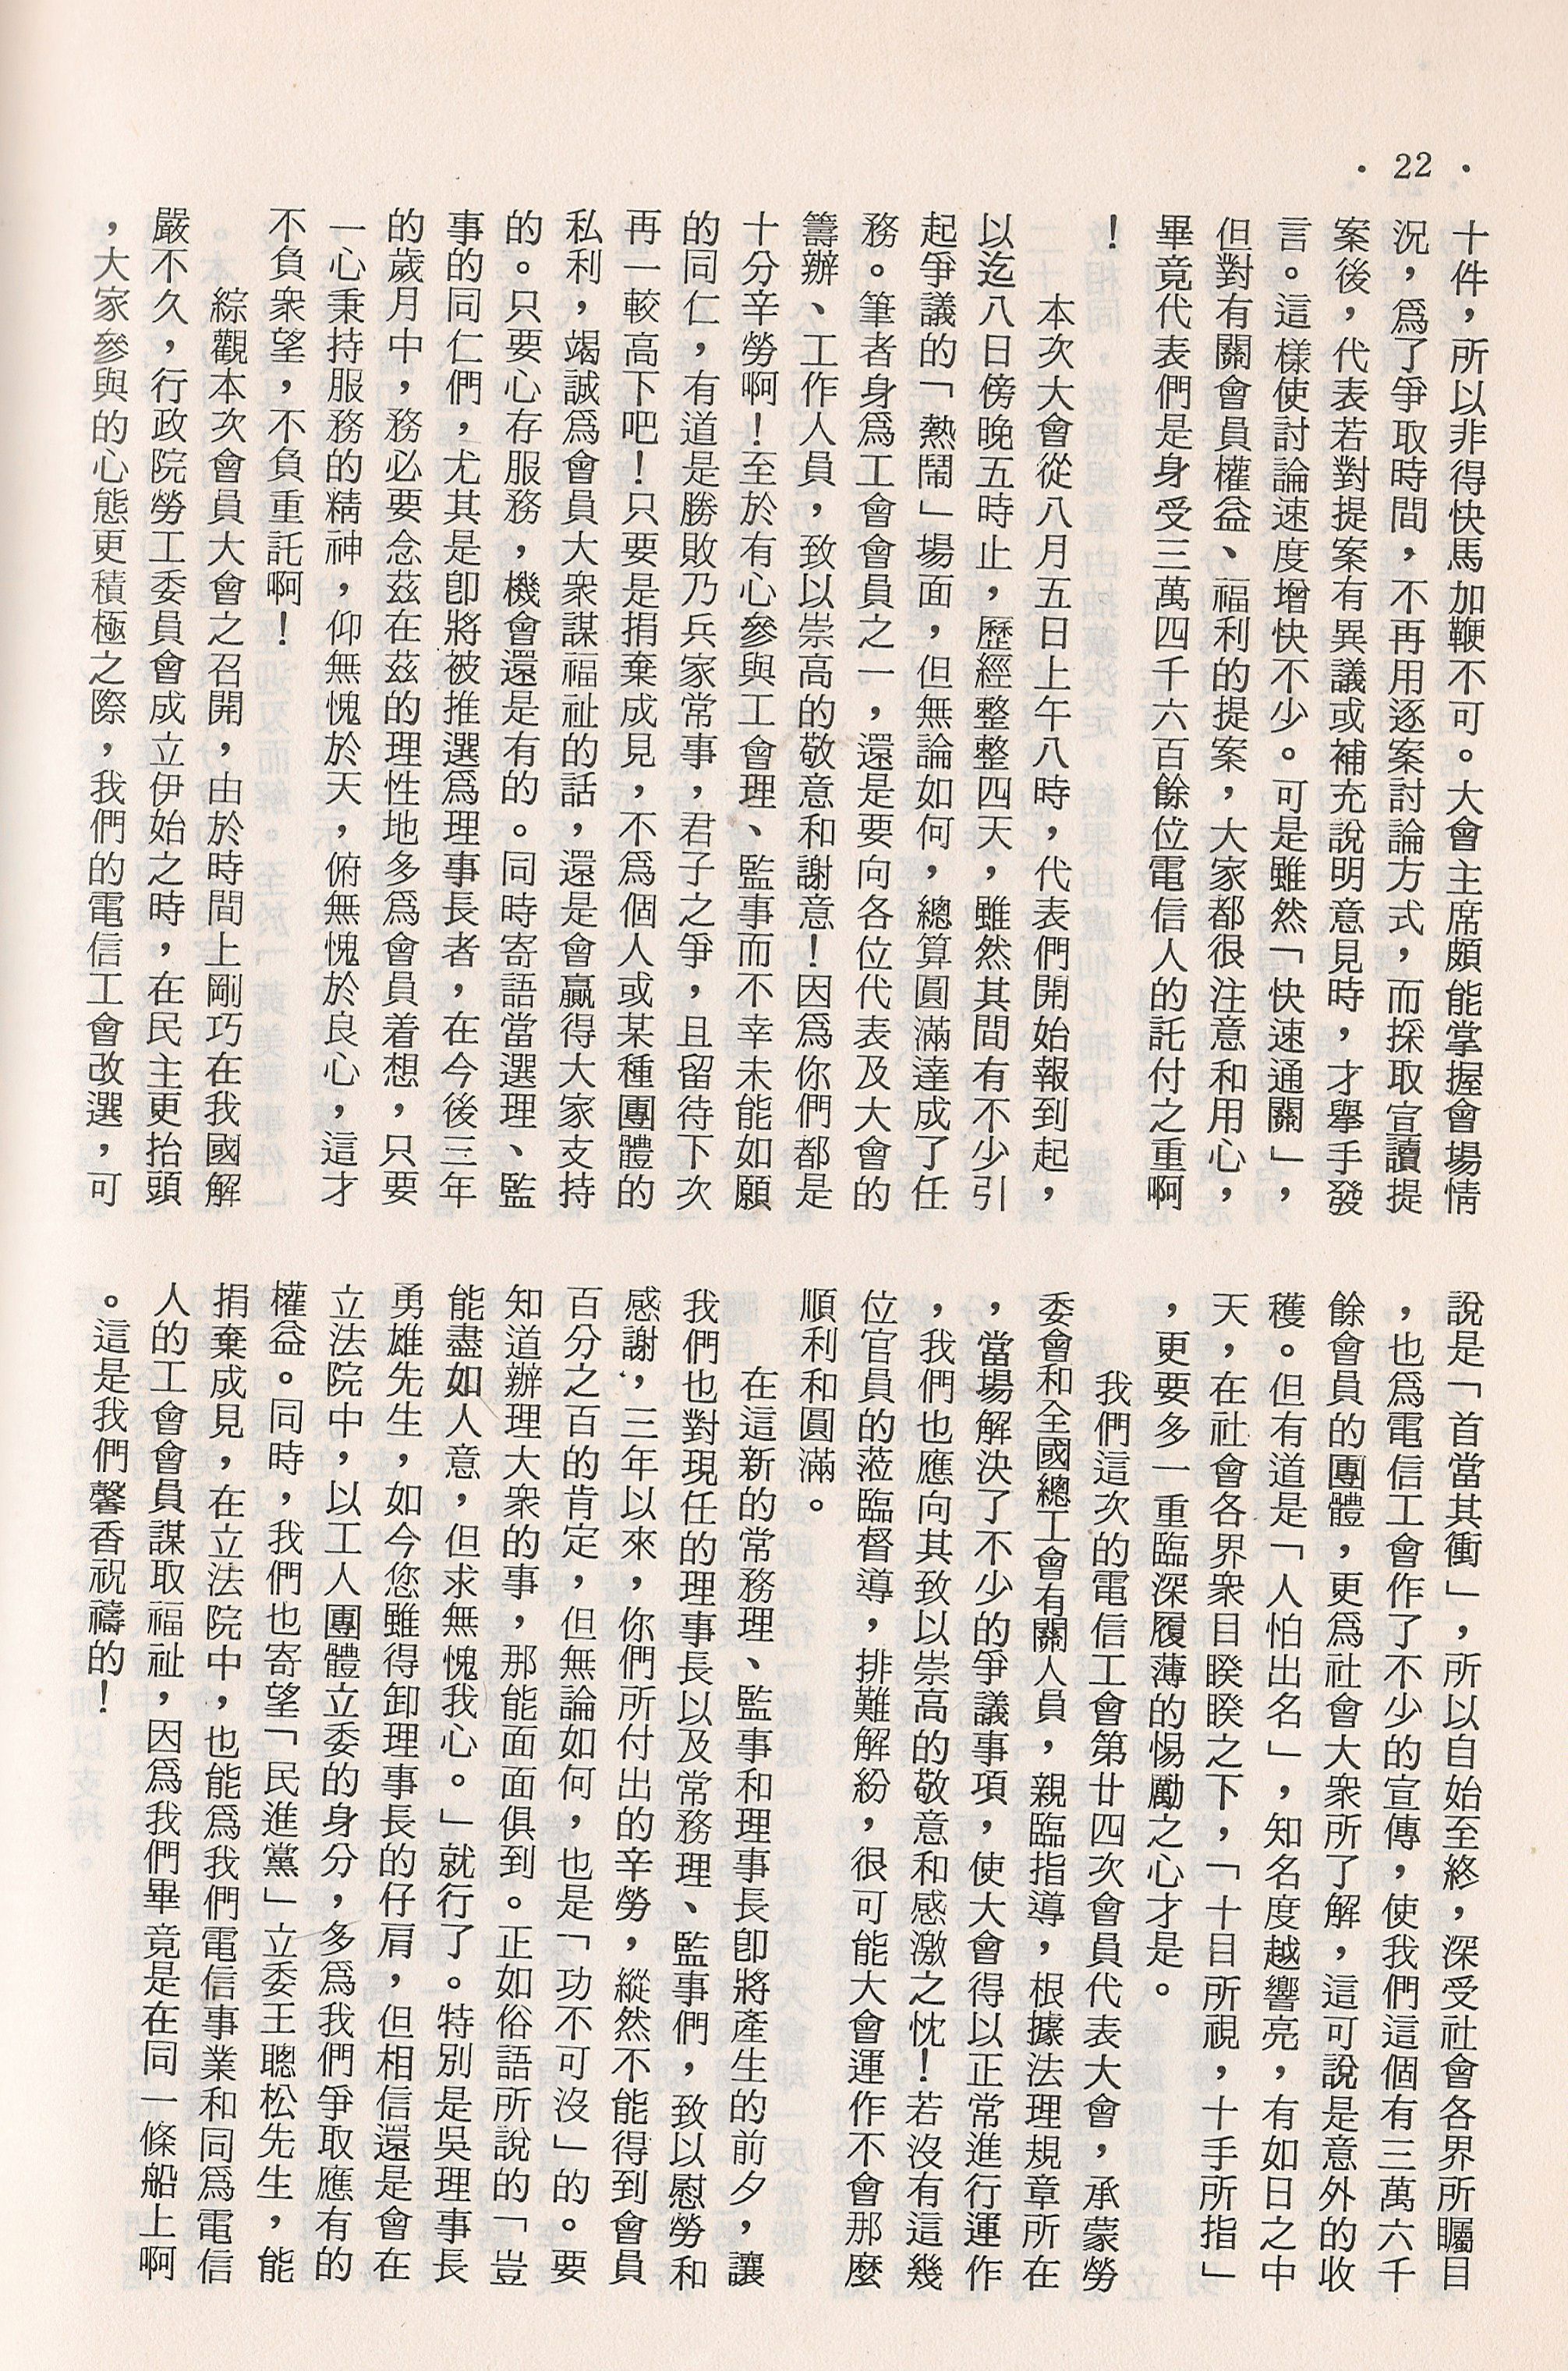 · 22 ·
十件，所以非得快馬加鞭不可。大會主席頗能掌握會場情
況，爲了爭取時間，不再用逐案討論方式，而採取宣讀提
案後，代表若對提案有異議或補充說明意見時，才舉手發
言。這樣使討論速度增快不少。可是雖然「快速通關」，
但對有關會員權益、福利的提案，大家都很注意和用心，
畢竟代表們是身受三萬四千六百餘位電信人的託付之重啊
！
本次大會從八月五日上午八時，代表們開始報到起，
以迄八日傍晚五時止，歷經整整四天，雖然其間有不少引
起爭議的「熱鬧」場面，但無論如何，總算圓滿達成了任
務。筆者身爲工會會員之一，還是要向各位代表及大會的
籌辦、工作人員，致以崇高的敬意和謝意！因爲你們都是
十分辛勞啊！至於有心參與工會理、監事而不幸未能如願
的同仁，有道是勝敗乃兵家常事，君子之爭，且留待下次
再一較高下吧！只要是捐棄成見，不爲個人或某種團體的
私利，竭誠爲會員大衆謀福祉的話，還是會贏得大家支持
的。只要心存服務，機會還是有的。同時寄語當選理、監
事的同仁們，尤其是卽將被推選爲理事長者，在今後三年
的歲月中，務必要念茲在茲的理性地多爲會員着想，只要
一心秉持服務的精神，仰無愧於天，俯無愧於良心，這才
不負衆望，不負重託啊！
綜觀本次會員大會之召開，由於時間上剛巧在我國解
嚴不久，行政院勞工委員會成立伊始之時，在民主更抬頭
，大家參與的心態更積極之際，我們的電信工會改選，可
說是「首當其衝」，所以自始至終，深受社會各界所矚目
，也爲電信工會作了不少的宣傳，使我們這個有三萬六千
餘會員的團體，更爲社會大衆所了解，這可說是意外的收
穫。但有道是「人怕出名」，知名度越響亮，有如日之中
天，在社會各界衆目睽睽之下，「十目所視，十手所指」
，更要多一重臨深履薄的惕勵之心才是。
我們這次的電信工會第廿四次會員代表大會，承蒙勞
委會和全國總工會有關人員，親臨指導，根據法理規章所在
，當場解決了不少的爭議事項，使大會得以正常進行運作
，我們也應向其致以崇高的敬意和感激之忱！若沒有這幾
位官員的蒞臨督導，排難解紛，很可能大會運作不會那麼
順利和圓滿。
在這新的常務理、監事和理事長卽將產生的前夕，讓
我們也對現任的理事長以及常務理、監事們，致以慰勞和
感謝，三年以來，你們所付出的辛勞，縱然不能得到會員
百分之百的肯定，但無論如何，也是「功不可沒」的。要
知道辦理大衆的事，那能面面俱到。正如俗語所說的「豈
能盡如人意，但求無愧我心。」就行了。特別是吳理事長
勇雄先生，如今您雖得卸理事長的仔肩，但相信還是會在
立法院中，以工人團體立委的身分，多爲我們爭取應有的
權益。同時，我們也寄望「民進黨」立委王聰松先生，能
捐棄成見，在立法院中，也能爲我們電信事業和同爲電信
人的工會會員謀取福祉，因爲我們畢竟是在同一條船上啊
。這是我們馨香祝禱的！